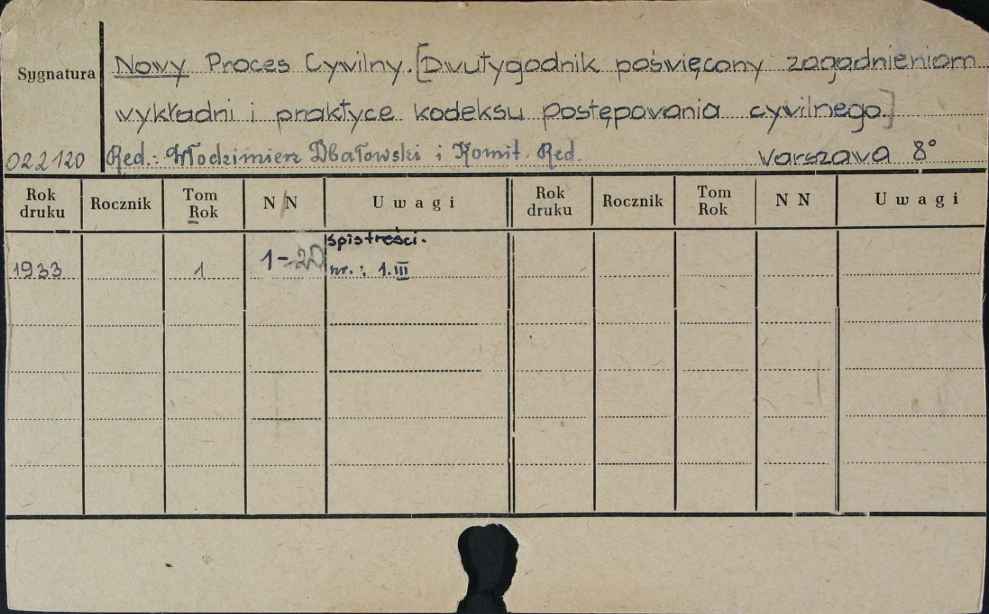 Sygnatura
Nowy Proces Cywilny. [Dwutygodnik poświęcony zagadnieniom
wykładni i praktyce kodeksu postępowania cywilnego.]
022120 Red.: Włodzimierz Dbałowski i Komit. Red. Warszawa 8°
Rok druku Rocznik Tom Rok N N Uwagi Rok druku Rocznik Tom Rok N N Uwagi
spis treści.
1933 1 1- nr.: 1.III